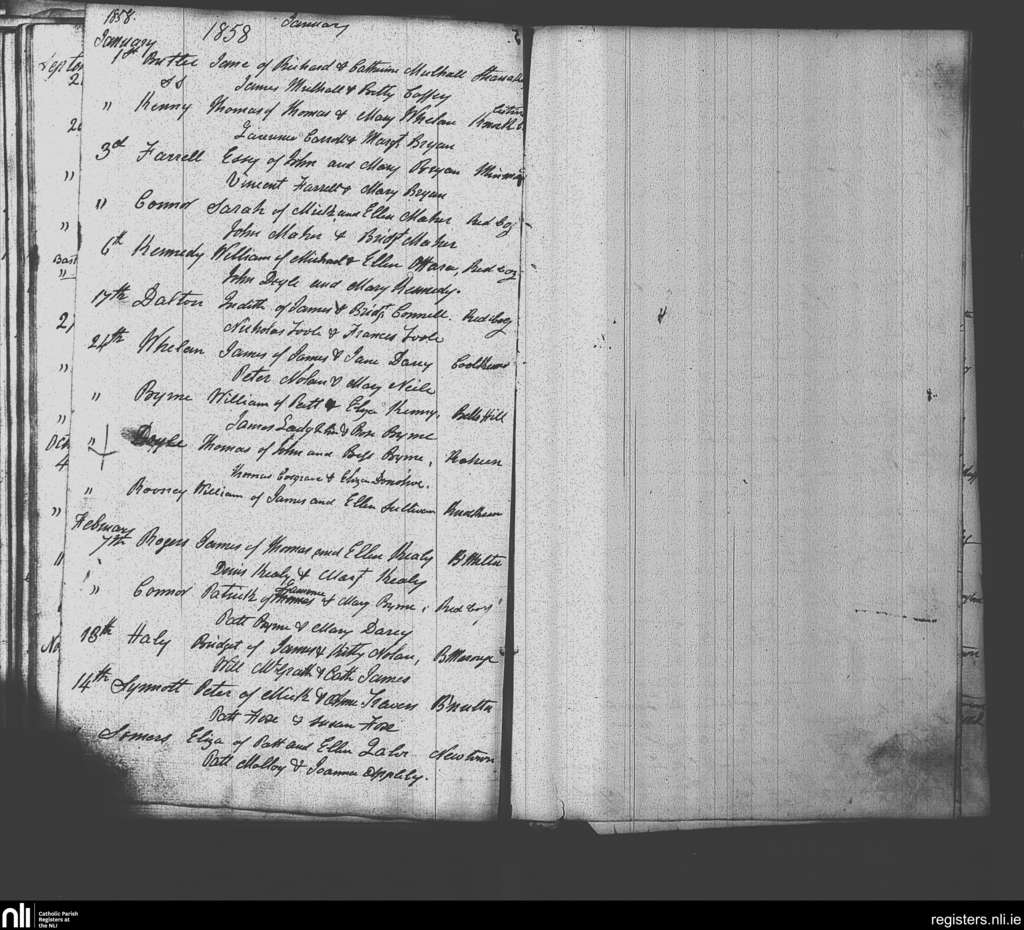 1858. January
1858
January
1st Butler Jane of Richard & Catherine Mulhall
SS James Mulhall & Betty Coffey
" Kenny Thomas of Thomas & Mary Whelan
Laurence Carroll & Margt Bryan
3d Farrell Essy of John and Mary Bryan
Vincent Farrell & Mary Bryan
" Connor Sarah of Mick and Ellen Maher Red bog
John Maher & Bridgt Maher
6th Kennedy William of Michael & Ellen OHara, Red bog
John Doyle and Mary Kennedy.
17th Dalton Judith of James & Bridgt Connell. Red bog
Nicholas Toole & Frances Toole
24th Whelan James of James & Jane Darcy
Peter Nolan & Mary Neile
" Byrne William of Patt & Eliza Kenny. Bells Hill
James & Rose Byrne
" Doyle Thomas of John and Bess Byrne,
Thomas Cosgrave & Eliza Donohoe.
" Rooney William of James and Ellen Sullivan
February
7th Rogers James of Thomas and Ellen Healy
Denis Healy & Margt Healy
" Connor Patrick of Thomas Laurence & Mary Byrne, Red bog
Patt Byrne & Mary Darcy
13th Haly Bridget of James & Kitty Nolan,
Will McGrath & Cath James
14th Synnott Peter of Mick & Anne Travers
Patt Foxe & Susan Foxe
Somers Eliza of Patt and Ellen Lalor Newtown
Patt Molloy & Joanna Appleby.
nli
Catholic Parish
Registers at
the NLI
registers.nli.ie